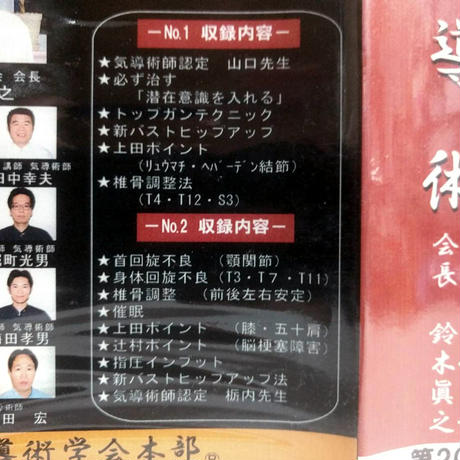 会長
之
講師 気導術師
田中幸夫
師 気導術師
町光男
師 気導術師
田孝男
術師
田 宏
ーNo.1 収録内容ー
★気導術師認定 山口先生
★必ず治す
「潜在意識を入れる」
★トップガンテクニック
★新バストヒップアップ
★上田ポイント
(リュウマチ・ヘバーデン結節)
★椎骨調整法
(T4・T12・S3)
ーNo.2 収録内容ー
★首回旋不良 (顎関節)
★身体回旋不良(T3・T7・T11)
★椎骨調整 (前後左右安定)
★催眠
★上田ポイント (膝・五十肩)
★辻村ポイント (脳梗塞障害)
★指圧インプット
★新バストヒップアップ法
★気導術師認定 栃内先生
導術学会本部
導術
会長 鈴木眞之
第20